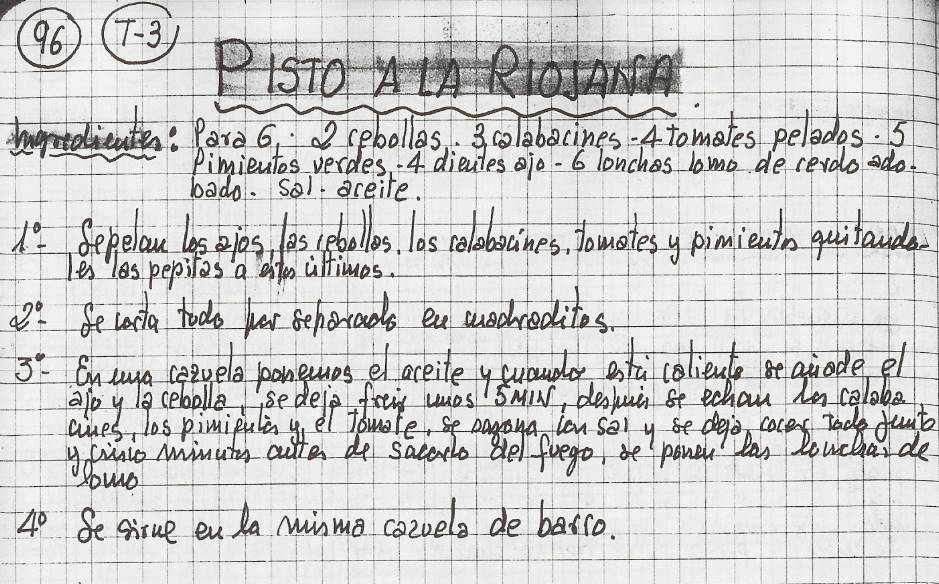 96 T-3
PISTO A LA RIOJANA.
Ingredientes: Para 6. 2 cebollas. 3 calabacines - 4 tomates pelados. 5
Pimientos verdes. - 4 dientes ajo - 6 lonchas lomo de cerdo ado-
bado. Sal - aceite.
1º- Se pelan los ajos, las cebollas, los calabacines, tomates y pimientos quitando-
les las pepitas a estos últimos.
2º- Se corta todo por separado en cuadraditos.
3º- En una cazuela ponemos el aceite y cuando está caliente se añade el
ajo y la cebolla, se deja freir unos 5 MIN, después se echan los calaba
cines, los pimientos y el tomate, se sazona con sal y se deja cocer todo junto
y cinco minutos antes de sacarlo del fuego, se ponen las lonchas de
lomo
4º Se sirve en la misma cazuela de barro.